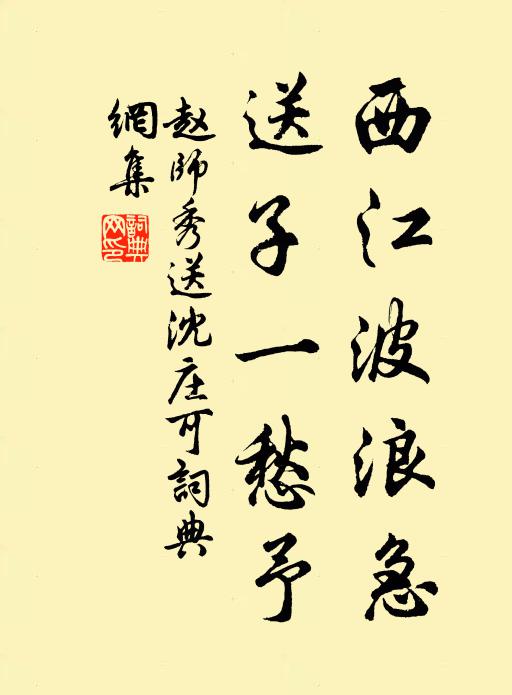 西江波浪急
送子一愁予
赵師秀送沈庄可詞典
網集
詞典
网印